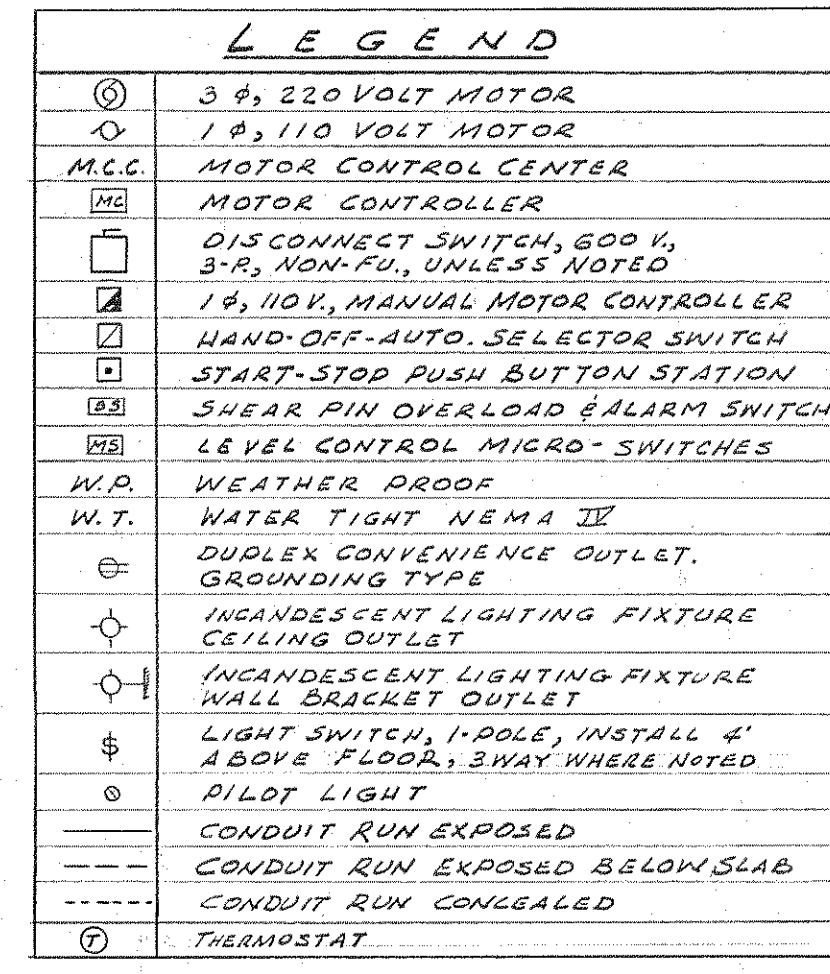 LEGEND
3 ϕ, 220 VOLT MOTOR
1 ϕ, 110 VOLT MOTOR
M.C.C. MOTOR CONTROL CENTER
MC MOTOR CONTROLLER
DISCONNECT SWITCH, 600 V.,
3-P., NON-FU., UNLESS NOTED
1 ϕ, 110 V., MANUAL MOTOR CONTROLLER
HAND-OFF-AUTO. SELECTOR SWITCH
START-STOP PUSH BUTTON STATION
BS SHEAR PIN OVERLOAD & ALARM SWITCH
MS LEVEL CONTROL MICRO-SWITCHES
W.P. WEATHER PROOF
W.T. WATER TIGHT NEMA IV
DUPLEX CONVENIENCE OUTLET.
GROUNDING TYPE
INCANDESCENT LIGHTING FIXTURE
CEILING OUTLET
INCANDESCENT LIGHTING FIXTURE
WALL BRACKET OUTLET
$ LIGHT SWITCH, 1-POLE, INSTALL 4'
ABOVE FLOOR, 3 WAY WHERE NOTED
PILOT LIGHT
CONDUIT RUN EXPOSED
CONDUIT RUN EXPOSED BELOW SLAB
CONDUIT RUN CONCEALED
T THERMOSTAT